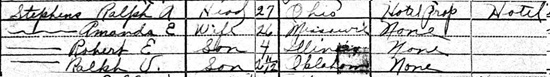 Stephens Ralph A Head 27 Ohio Hotel Prop Hotel
— Amanda E Wife 26 Missouri None
— Robert E. Son 4 Illinois None
— Ralph V. Son 2 1/2 Oklahoma None